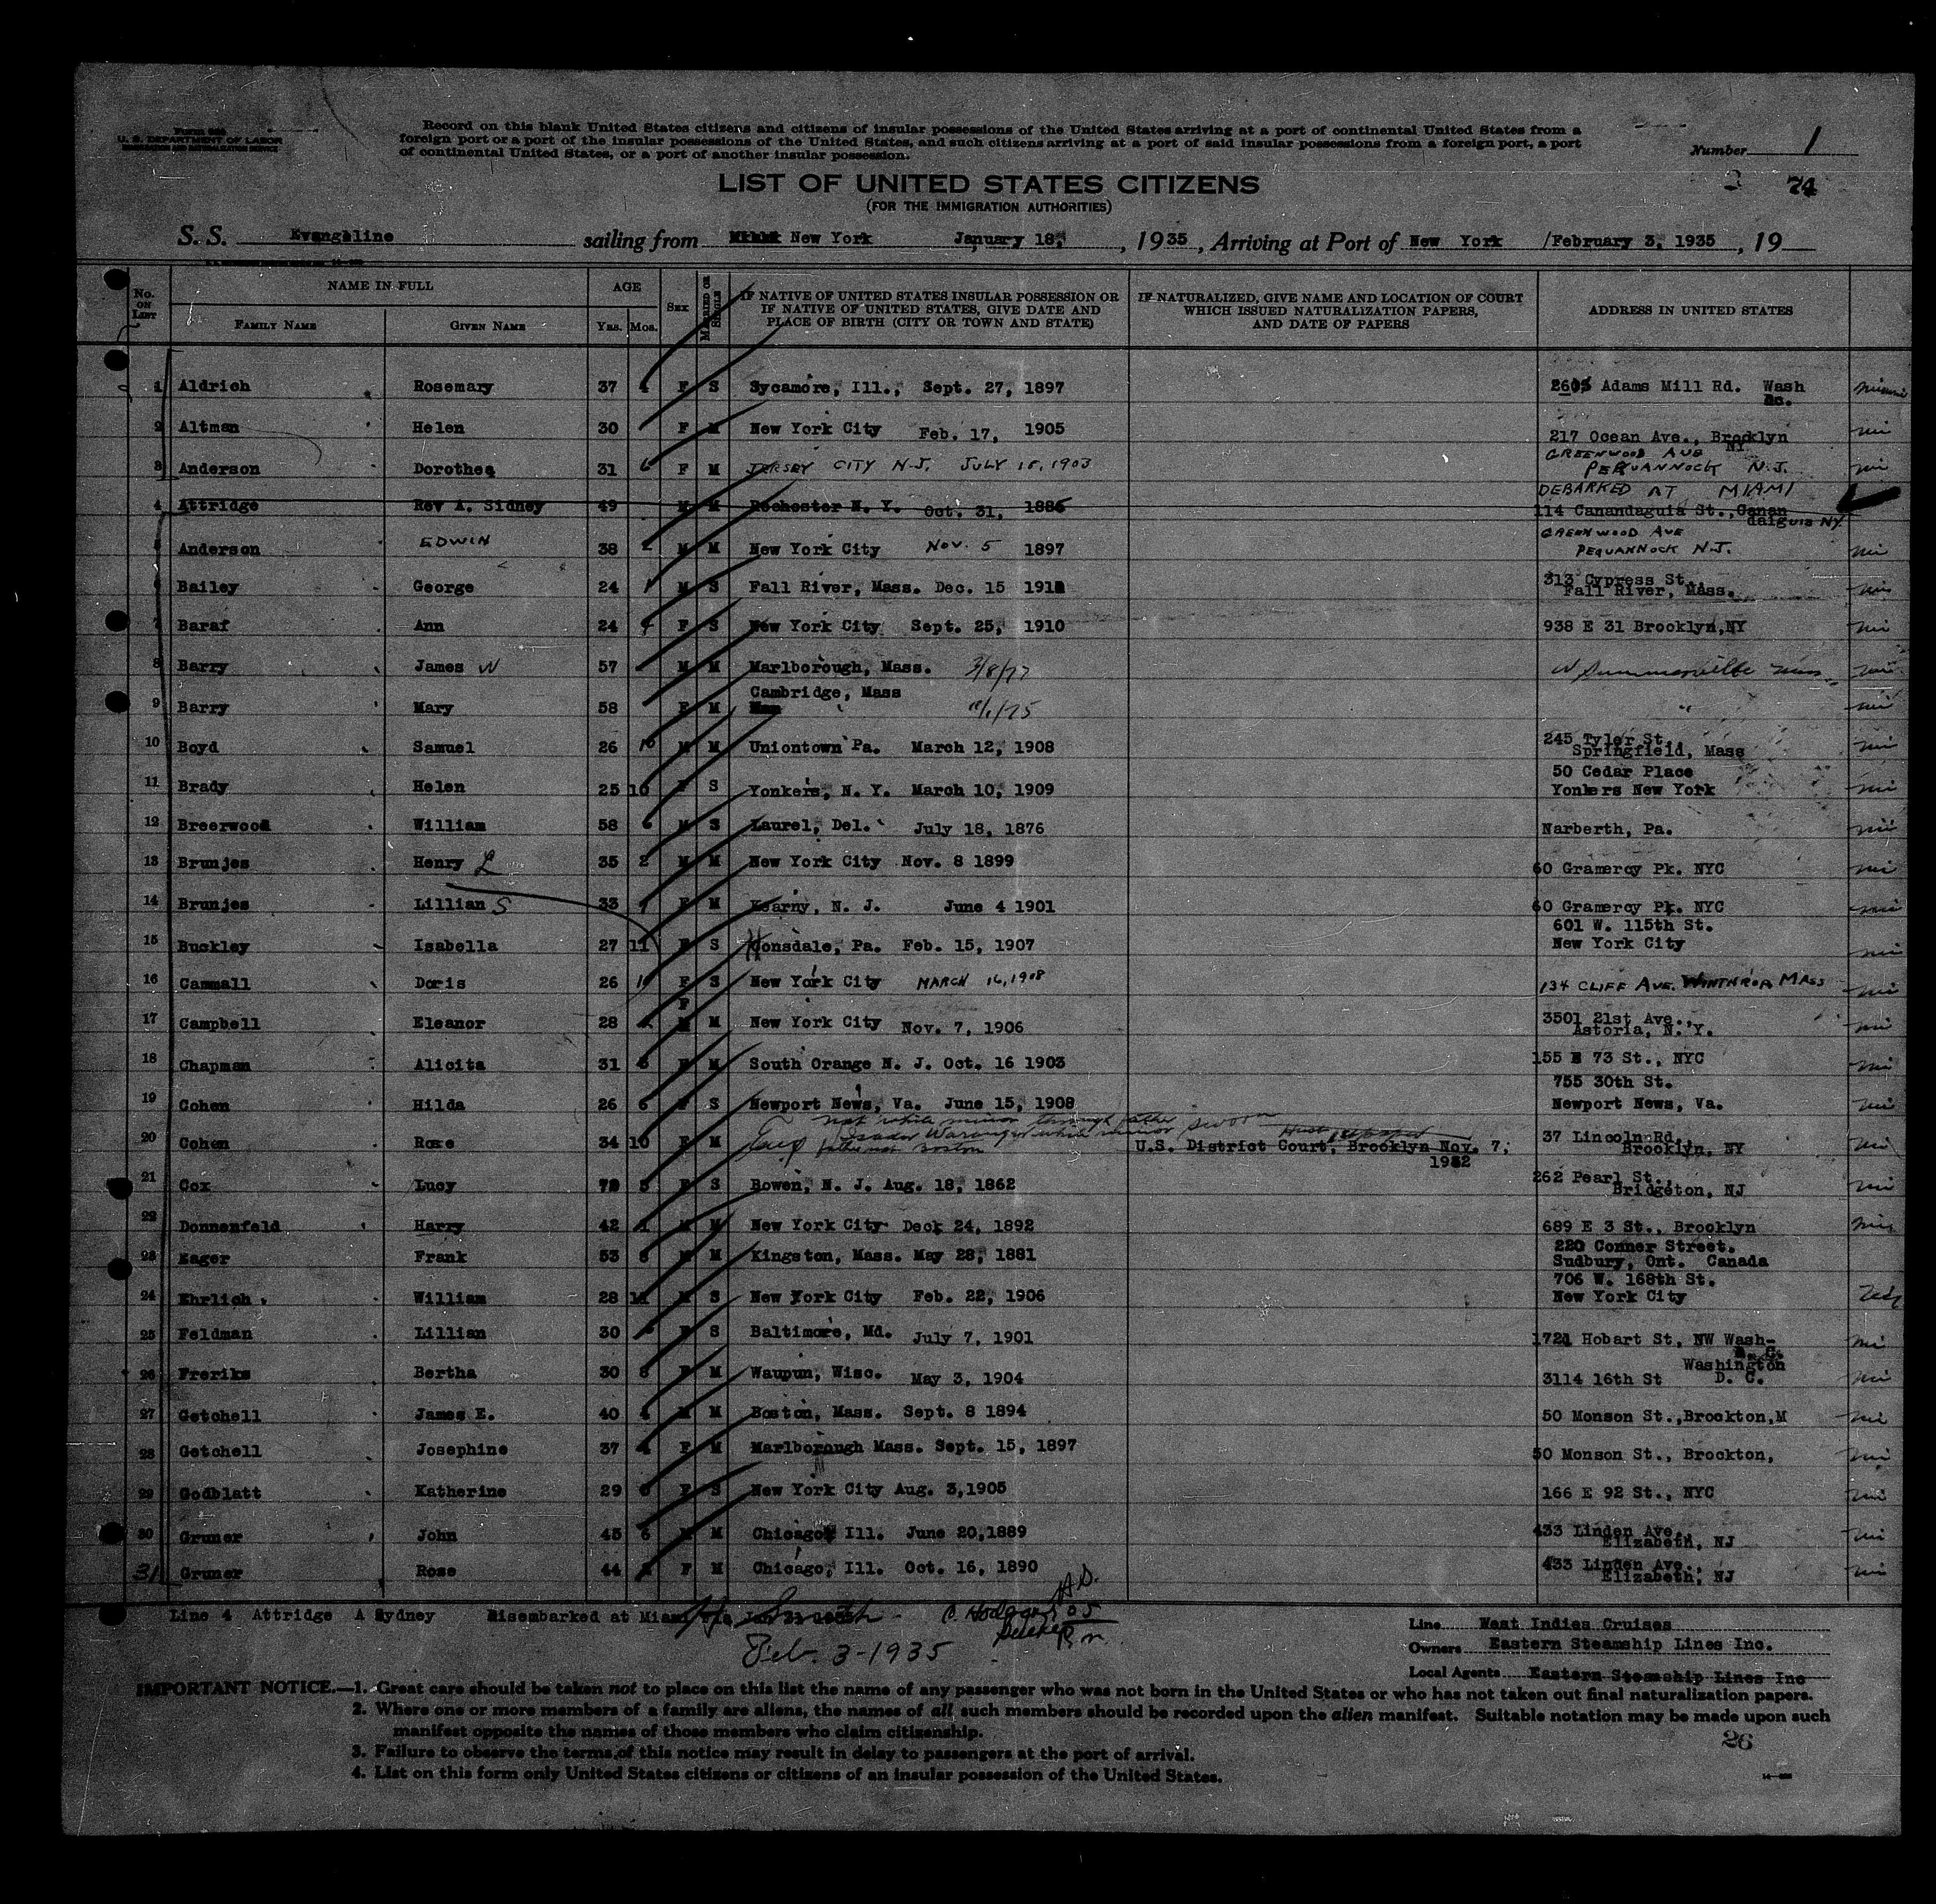 Form 630
U. S. DEPARTMENT OF LABOR
IMMIGRATION AND NATURALIZATION SERVICE
Record on this blank United States citizens and citizens of insular possessions of the United States arriving at a port of continental United States from a
foreign port or a port of the insular possessions of the United States, and such citizens arriving at a port of said insular possessions from a foreign port, a port
of continental United States, or a port of another insular possession.
Number 1
74
LIST OF UNITED STATES CITIZENS
(FOR THE IMMIGRATION AUTHORITIES)
S. S. Evangeline sailing from New York January 18, , 1935 , Arriving at Port of New York /February 3, 1935 , 19
No. ON LIST NAME IN FULL AGE SEX MARRIED OR SINGLE IF NATIVE OF UNITED STATES INSULAR POSSESSION OR IF NATIVE OF UNITED STATES, GIVE DATE AND PLACE OF BIRTH (CITY OR TOWN AND STATE) IF NATURALIZED, GIVE NAME AND LOCATION OF COURT WHICH ISSUED NATURALIZATION PAPERS, AND DATE OF PAPERS ADDRESS IN UNITED STATES
FAMILY NAME GIVEN NAME Yrs. Mos.
1 Aldrich Rosemary 37 4 F S Sycamore, Ill., Sept. 27, 1897 Adams Mill Rd. Wash Dc.
2 Altman Helen 30 F M New York City Feb. 17, 1905 217 Ocean Ave., Brooklyn NY
3 Anderson Dorothea 31 6 F M JERSEY CITY N.J. JULY 15, 1903 GREENWOOD AVE PEQUANNOCK N.J.
DEBARKED AT MIAMI
4 Attridge Rev A. Sidney 49 M M Rochester N. Y. Oct. 31, 1885 114 Canandaguia St., Canandaiguia NY.
5 Anderson EDWIN 38 2 M M New York City NOV. 5 1897 GREENWOOD AVE PEQUANNOCK N.J.
6 Bailey George 24 1 M S Fall River, Mass. Dec. 15 191 313 Cypress St., Fall River, Mass.
7 Baraf Ann 24 4 F S New York City Sept. 25, 1910 938 E 31 Brooklyn,NY
8 Barry James W 57 M M Marlborough, Mass. 3/8/77 W Summerville Mass
9 Barry Mary 58 F M Cambridge, Mass "
10 Boyd Samuel 26 10 M M Uniontown Pa. March 12, 1908 245 Tyler St., Springfield, Mass
11 Brady Helen 25 10 F S Yonkers, N. Y. March 10, 1909 50 Cedar Place Yonkers New York
12 Breerwood William 58 6 M S Laurel, Del. July 18, 1876 Narberth, Pa.
13 Brunjes Henry L 35 2 M M New York City Nov. 8 1899 60 Gramercy Pk. NYC
14 Brunjes Lillian S 33 F M Kearny, N. J. June 4 1901 60 Gramercy Pk. NYC
15 Buckley Isabella 27 11 F S Honsdale, Pa. Feb. 15, 1907 601 W. 115th St. New York City
16 Cammall Doris 26 10 F S New York City MARCH 16, 1908 134 CLIFF AVE. WINTHROP MASS
17 Campbell Eleanor 28 F M New York City Nov. 7, 1906 3501 21st Ave., Astoria, N. Y.
18 Chapman Alicita 31 F M South Orange N. J. Oct. 16 1903 155 E 73 St., NYC
19 Cohen Hilda 26 6 F S Newport News, Va. June 15, 1908 755 30th St. Newport News, Va.
20 Cohen Rose 34 10 F M U.S. District Court, Brooklyn Nov. 7, 1932 37 Lincoln Rd., Brooklyn, NY
21 Cox Lucy 72 5 F S Bowen, N. J. Aug. 18, 1862 262 Pearl St., Bridgeton, NJ
22 Donnenfeld Harry 42 1 M M New York City Dec. 24, 1892 689 E 3 St., Brooklyn
23 Eager Frank 53 8 M M Kingston, Mass. May 28, 1881 220 Conner Street. Sudbury, Ont. Canada
24 Ehrlich William 28 11 M S New York City Feb. 22, 1906 706 W. 168th St. New York City
25 Feldman Lillian 30 F S Baltimore, Md. July 7, 1901 1721 Hobart St, NW Wash- D. C.
26 Freriks Bertha 30 8 F M Waupun, Wisc. May 3, 1904 3114 16th St Washington D. C.
27 Getchell James E. 40 4 M M Boston, Mass. Sept. 8 1894 50 Monson St.,Brockton,M
28 Getchell Josephine 37 4 F M Marlborough Mass. Sept. 15, 1897 50 Monson St., Brockton,
29 Godblatt Katherine 29 F S New York City Aug. 3,1905 166 E 92 St., NYC
30 Gruner John 45 6 M M Chicago, Ill. June 20,1889 433 Linden Ave., Elizabeth, NJ
31 Gruner Rose 44 F M Chicago, Ill. Oct. 16, 1890 433 Linden Ave., Elizabeth, NJ
Line 4 Attridge A Sydney Disembarked at Miami
Feb. 3-1935
Line West Indies Cruises
Owners Eastern Steamship Lines Inc.
Local Agents Eastern Steamship Lines Inc
IMPORTANT NOTICE.—1. Great care should be taken not to place on this list the name of any passenger who was not born in the United States or who has not taken out final naturalization papers.
2. Where one or more members of a family are aliens, the names of all such members should be recorded upon the alien manifest. Suitable notation may be made upon such
manifest opposite the names of those members who claim citizenship.
3. Failure to observe the terms of this notice may result in delay to passengers at the port of arrival.
4. List on this form only United States citizens or citizens of an insular possession of the United States.
26